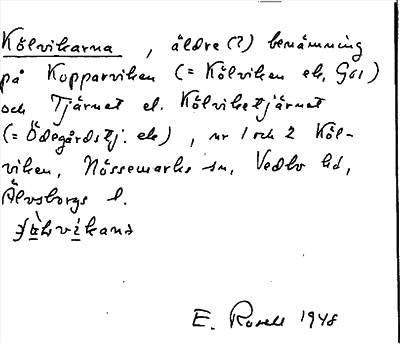 Kölvikarna, äldre (?) benämning
på Kopparviken (= Kölviken ek, G61)
och Tjärnet el. Kölviketjärnet
(= Ödegårdstj. ek), nr 1 och 2 Köl-
viken, Nössemarks sn, Vedbo hd,
Älvsborgs l.
E. Rosell 1948